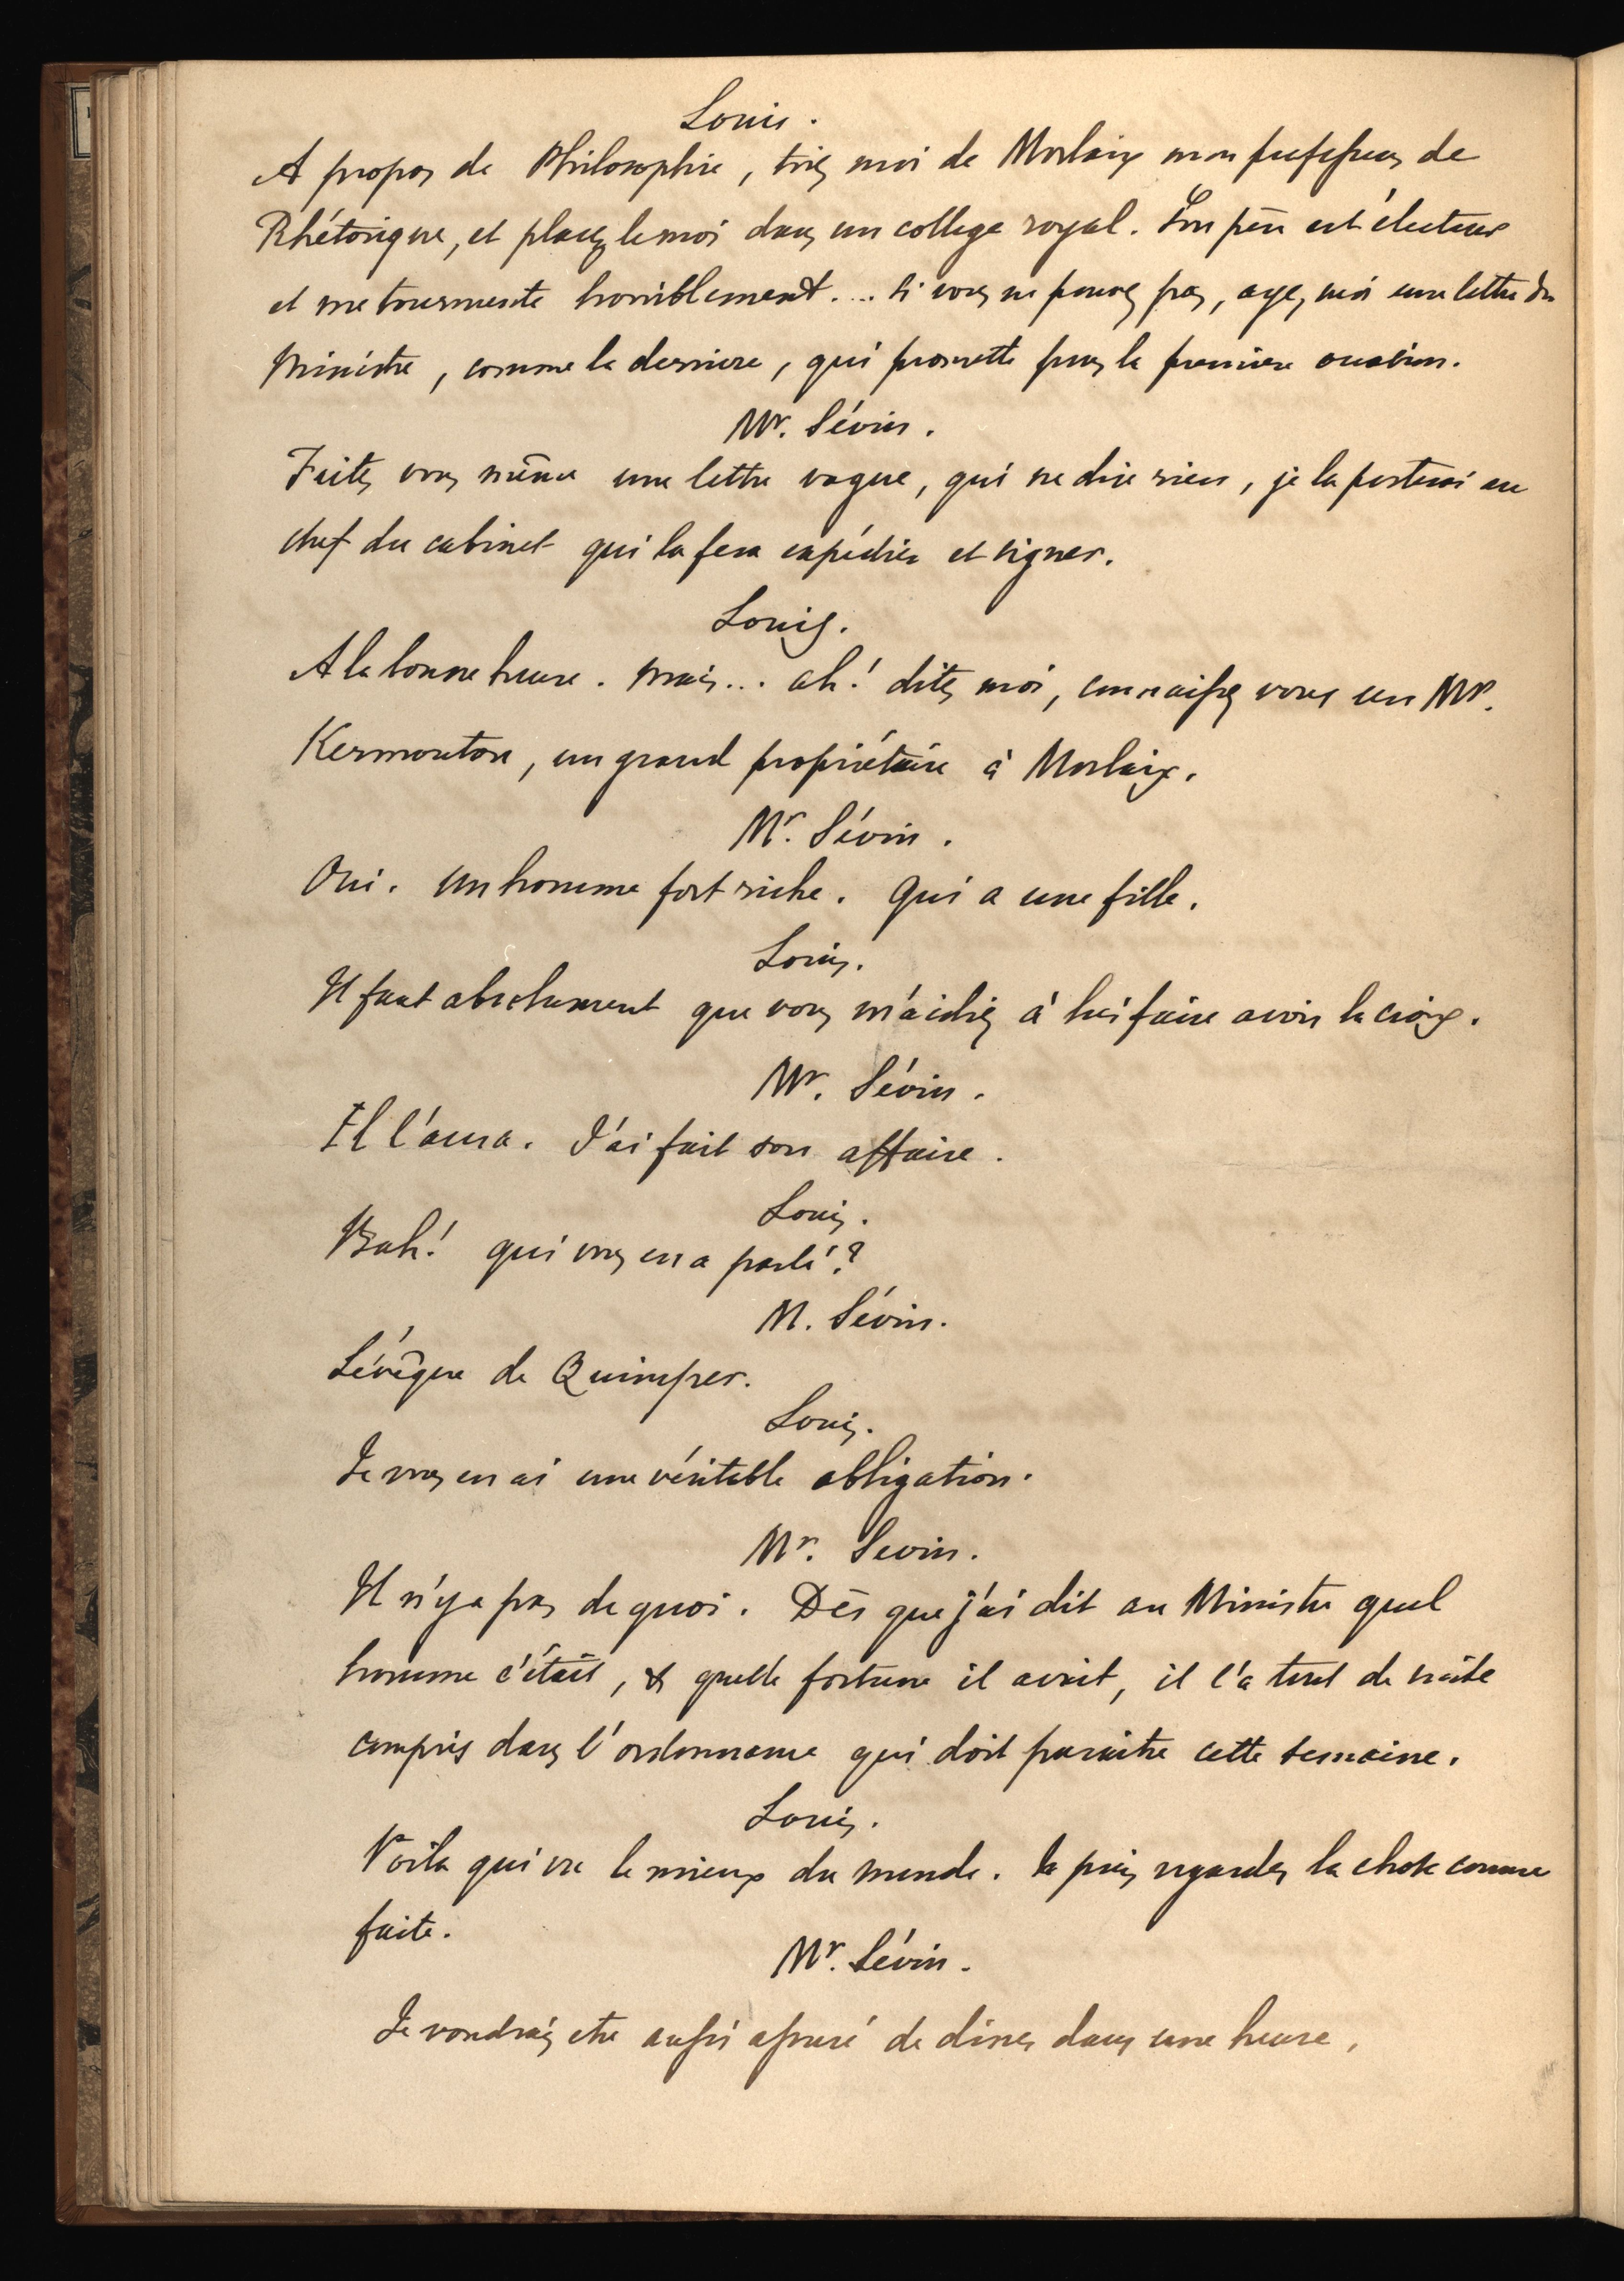 Louis.
A propos de Philosophie, tirez moi de Morlaix mon professeur de
Rhétorique, et placez le moi dans un college royal. Son père est électeur
et me tourmente horriblement.... Si vous ne pouvez pas, ayez moi une lettre du
Ministre, comme la derniere, qui promette pour la premiere occasion.
Mr. Sévin.
Faites vous même une lettre vague, qui ne dise rien, je la porterai au
chef du cabinet qui la fera expédier et signer.
Louis.
A la bonne heure. Mais... ah! dites moi, connaissez vous un Mr.
Kermouton, un grand propriétaire à Morlaix.
Mr. Sévin.
Oui. Un homme fort riche. Qui a une fille.
Louis.
Il faut absolument que vous m'aidiez à lui faire avoir la croix.
Mr. Sévin.
Il l'aura. J'ai fait son affaire.
Louis.
Bah! qui vous en a parlé?
M. Sévin.
L'évêque de Quimper.
Louis.
Je vous en ai une véritable obligation.
Mr. Sevin.
Il n'y a pas de quoi. Dès que j'ai dit au Ministre quel
homme c'était, & quelle fortune il avait, il l'a tout de suite
compris dans l'ordonnance qui doit paraitre cette semaine.
Louis.
Voila qui va le mieux du monde. Je puis regarder la chose comme
faite.
Mr. Sévin.
Je voudrais etre aussi assuré de diner dans une heure.